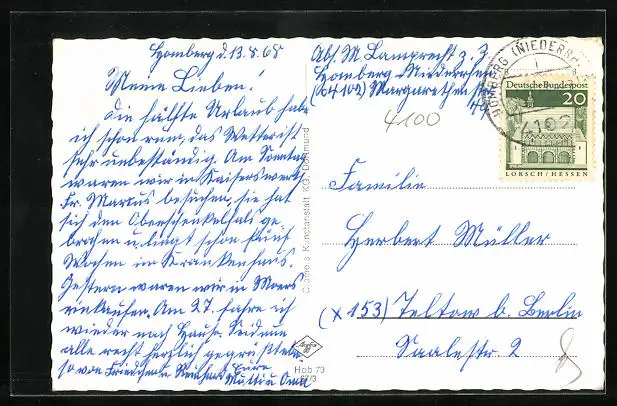 Homberg d. 13.8.68
Meine Lieben!
Die hälfte Urlaub habe
ich schon rum, das Wetter ist
sehr unbeständig. Am Sonntag
waren wir in Kaiserswerth
Fr. Martus besuchen, sie hat
sich den Oberschenkelhals ge
brochen u. liegt schon fünf
Wochen im Krankenhaus.
Gestern waren wir in Moers
einkaufen. Am 27. fahre ich
wieder nach Hause. Seid nun
alle recht herzlich gegrüßt
so von Friedchen Eure
Mutti u. Oma
Abs. M. Lamprecht z. Z
Homberg Niederrhein
(4102) Margarethenstr
4100
Familie
Herbert Müller
(X 153) Teltow b. Berlin
Saalestr. 2
HOMBERG (NIEDERRH
4102
Deutsche Bundespost
20
LORSCH/HESSEN
Cramers Kunstanstalt KG, Dortmund
Hob 73
67/3